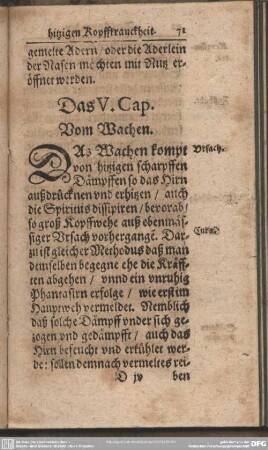 hitzigen Kopfftranckheit. 71
gemelte Adern / oder die Aderlein
der Nasen möchten mit Nutz er-
öffnet werden.
Das V. Cap.
Vom Wachen.
DAs Wachen kompt
von hitzigen scharpffen
Dämpffen so das Hirn
außdrücknen vnd erhitzen / auch
die Spiritus dissipiren / bevorab /
so groß Kopffwehe auß ebenmäs-
siger Vrsach vorhergange. Dar-
zu ist gleicher Methodus daß man
demselben begegne ehe die Kräff-
ten abgehen / vnnd ein vnruhig
Phantasirn erfolge / wie erst im
Hauptweh vermeldet. Nemblich
daß solche Dämpff vnder sich ge-
zogen vnd gedämpfft / auch das
Hirn befeucht vnd erkühlet wer-
de: sollen demnach vermeltes rei-
D iv ben
Vrsach.
Cura.
DFG